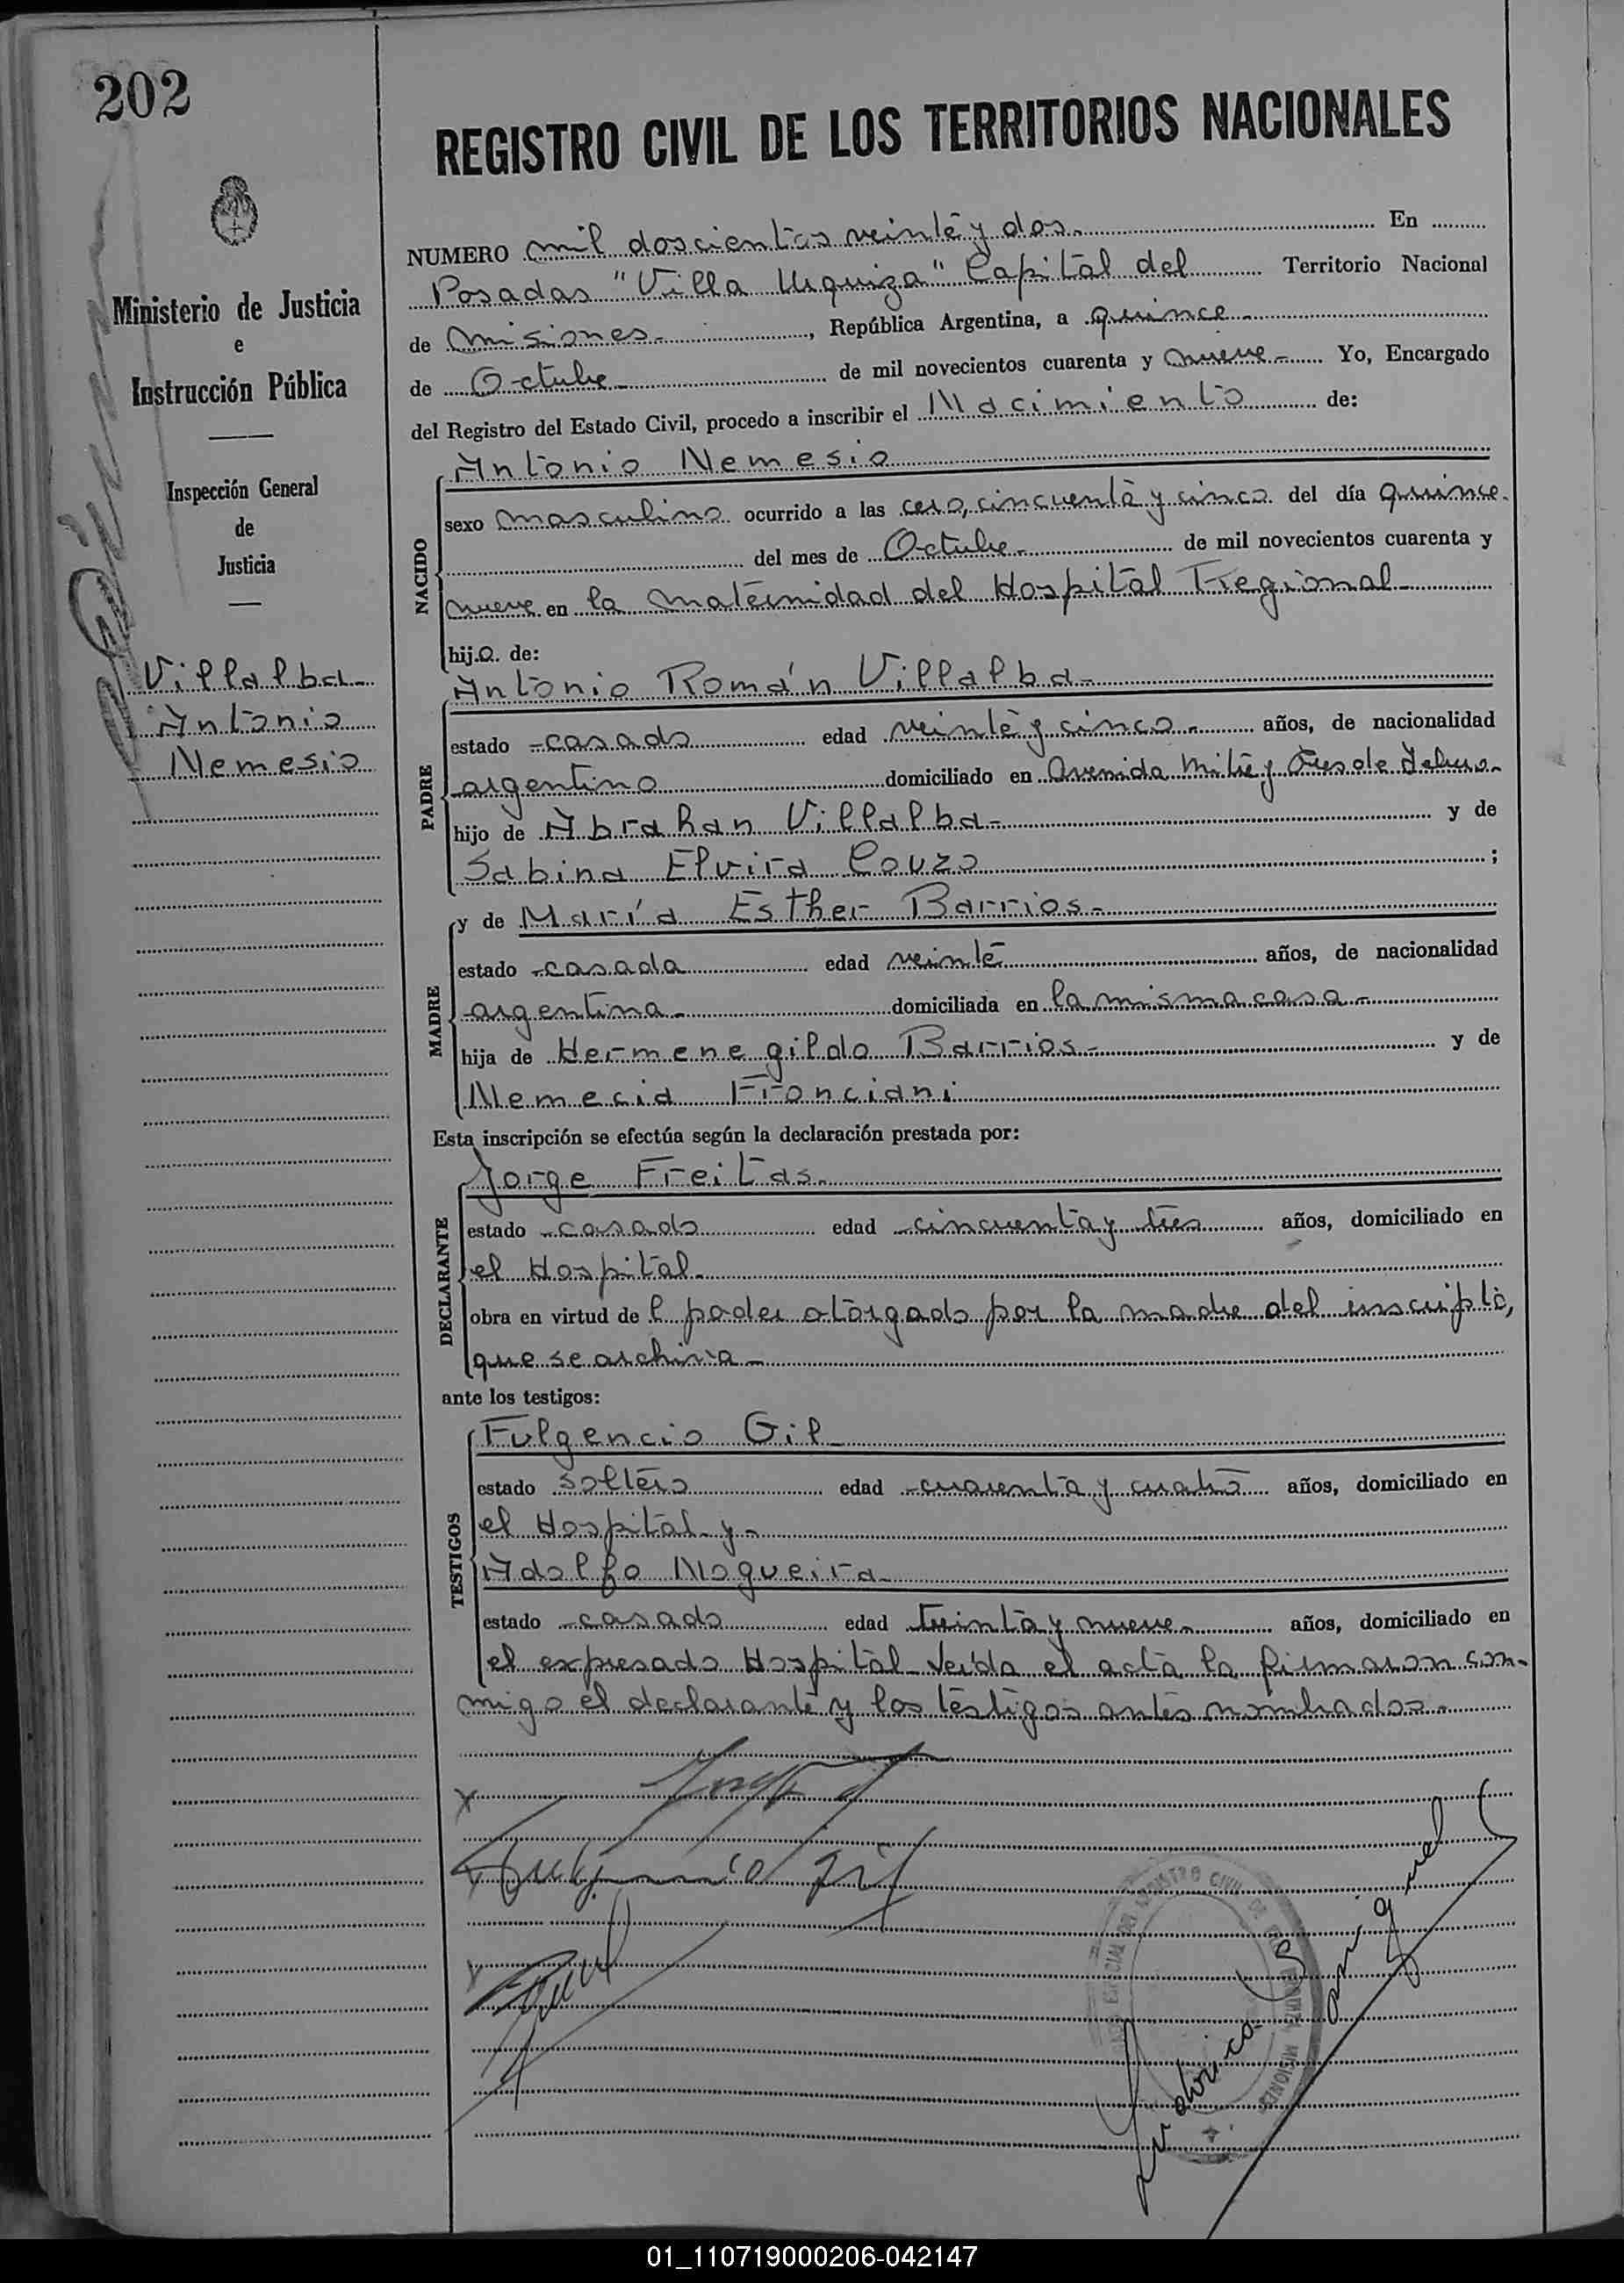 202
REGISTRO CIVIL DE LOS TERRITORIOS NACIONALES
Ministerio de Justicia
e
Instrucción Pública
Inspección General
de
Justicia
Villalba
Antonio
Nemesio
NUMERO mil doscientos veinte y dos. En
Posadas "Villa Urquiza" Capital del Territorio Nacional
de Misiones, República Argentina, a quince
de Octubre de mil novecientos cuarenta y nueve Yo, Encargado
del Registro del Estado Civil, procedo a inscribir el Nacimiento de:
Antonio Nemesio
NACIDO
sexo masculino ocurrido a las cero, cincuenta y cinco del día quince
del mes de Octubre de mil novecientos cuarenta y
nueve en la maternidad del Hospital Regional
hijo. de:
Antonio Román Villalba
PADRE
estado casado edad veinte y cinco años, de nacionalidad
argentino domiciliado en Avenida Mitre y Tres de Febrero
hijo de Abrahan Villalba y de
Sabina Elvira Couzo ;
MADRE
y de María Esther Barrios
estado casada edad veinte años, de nacionalidad
argentina domiciliada en la misma casa
hija de Hermenegildo Barrios y de
Nemecia Fronciani
Esta inscripción se efectúa según la declaración prestada por:
Jorge Freitas
DECLARANTE
estado casado edad cincuenta y tres años, domiciliado en
el Hospital
obra en virtud de l poder otorgado por la madre del inscripto,
que se archiva
ante los testigos:
Fulgencio Gil
TESTIGOS
estado soltero edad cuarenta y cuatro años, domiciliado en
el Hospital y
Adolfo Nogueira
estado casado edad treinta y nueve años, domiciliado en
el expresado Hospital Leída el acta la firmaron con-
migo el declarante y los testigos antes nombrados.
Fulgencio Gil
REGISTRO CIVIL
MISIONES
01_110719000206-042147